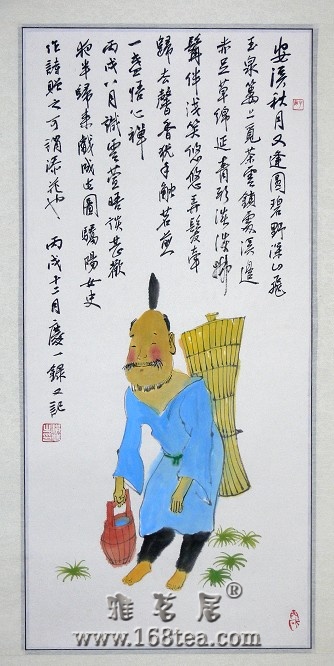 安溪秋月又逢圓碧野深山飛
玉泉茶雲鎖雲溟邊
赤足草綿延青彩淡淡拂
髯伴淺笑悠悠弄髮牽
歸去馨香猶手觸茗煎
一壺悟心禪
丙戌八月識雲萱晤談甚歡
夜半歸來戲成此圖驕陽女史
作詩贈之可謂添花也 丙戌十二月慶一錄又記
雅茗居®
www.168tea.com